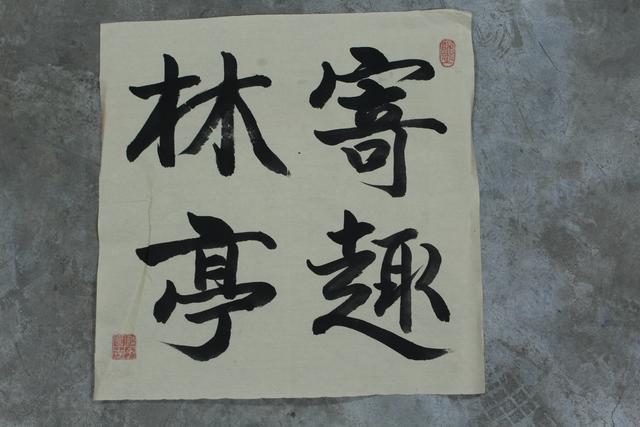 寄趣
林亭